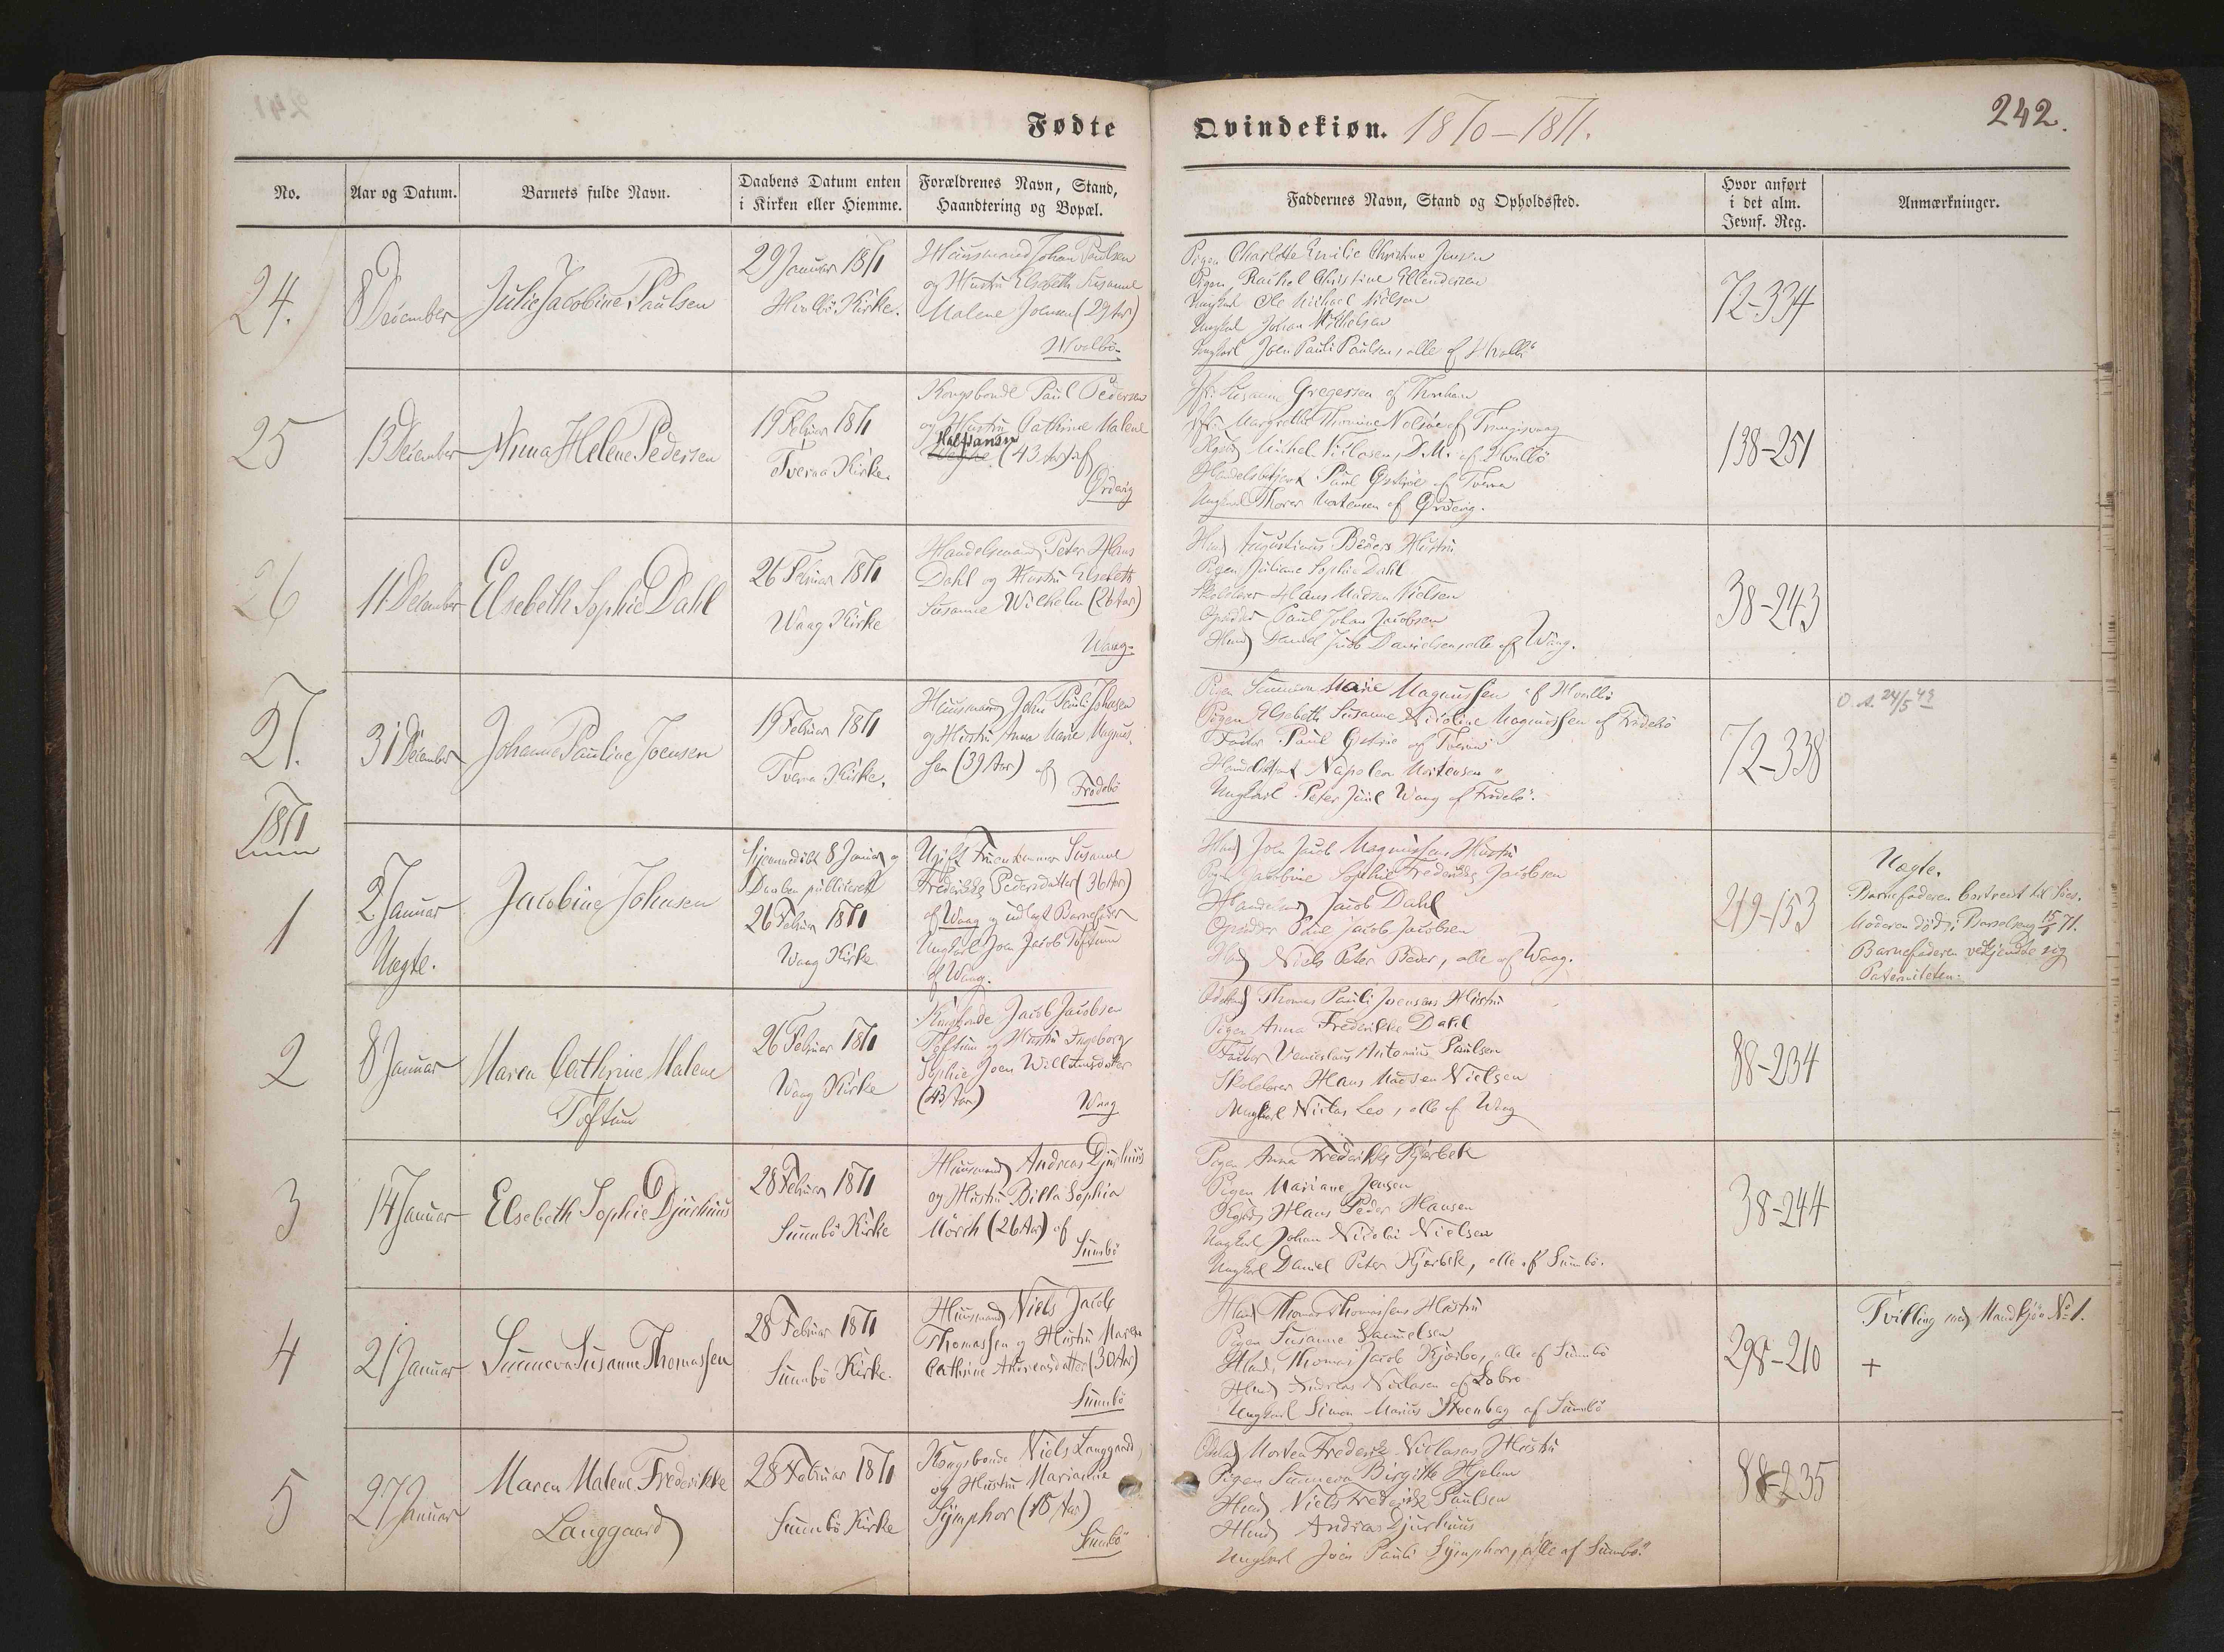 Fødte
Qvindekiøn. 1870-1871.
242.
No.
Aar og Datum.
Barnets fulde Navn.
Daabens Datum enten
i Kirken eller Hiemme.
Forældrenes Navn, Stand,
Haandtering og Bopæl.
Faddernes Navn, Stand og Opholdssted.
Hvor anført
i det alm.
Jevnf. Reg.
Anmærkninger.
24.
8 December
Julie Jacobine Paulsen
29 Januar 1871
Hvalbö Kirke.
Huusmand Johan Paulsen
og Hustru Elsebeth Susanne
Malene Joensen (29 Aar)
Hvalbö.
Pigen Charlotte Emilie Christine Jensen
Pigen Rachel Christine Ellendersen
Ungkarl Ole Michael Nielsen
Ungkarl Johan Michelsen
Ungkarl Joen Pauli Paulsen, alle af Hvalbö
72-334
25
13 December
Anna Helene Pedersen
19 Februar 1871
Tveraa Kirke.
Kongsbonde Paul Pedersen
og Hustru Cathrine Malene
Halfdansen
(43 Aar) af
Ørdevig
Jfr. Susanne Gregersen af Thorshavn
Jfr. Margrethe Thomine Nolsøe af Trangisvaag
Michel Niclasen, D.M. af Hvalbö
Handelsbetjent Paul Østrøe af Tveraa
Ungkarl Thorer Mortensen af Ørdevig.
138-251
26
11 December
Elsebeth Sophie Dahl
26 Februar 1871
Waag Kirke
Handelsmand Peter Hans
Dahl og Hustru Elsebeth
Susanne Wilhelm (26 Aar)
Waag.
Huusmd Augustinus Beders Hustru
Pigen Juliane Sophie Dahl
Skolelærer Hans Madsen Nielsen
Opsidder Paul Johan Jacobsen
Huusmd Daniel Jacob Danielsen, alle af Waag.
38-243
27.
31 December
Johanne Pauline Joensen
19 Februar 1871
Tveraa Kirke.
Huusmand John Pauli Johnsen
og Hustru Anna Marie Magnus-
sen (39 Aar) af
Frodebö
Pigen Sunneva Marie Magnussen af Hvalbö
Pigen Elsebeth Susanne Nicoline Magnussen af Frodebö
Factor Paul Østrøe af Tveraa
Handelsbetjent Napoleon Mortensen "
Ungkarl Peter Juul Waag af Frodebö.
72-338
O. A. 24/5 49
1871
1
2 Januar
Uægte.
Jacobine Johnsen
Hjemmedöbt 8 Januar og
Daaben publiceret
26 Februar 1871
Waag Kirke
Ugift Fruentimmer Susanne
Frederikke Pedersdatter (36 Aar)
af Waag og udlagt Barnefader
Ungkarl Joen Jacob Toftum
af Waag.
Huusmd Joen Jacob Magnussens Hustru
Pigen Jacobine Sophie Frederikke Jacobsen
Handelsmd Jacob Dahl
Opsidder Paul Jacob Jacobsen
Huusmd Niels Peter Beder, alle af Waag.
249-153
Uægte.
Barnefaderen bortreist til Søes.
Moderen död i Barselseng 15/1 71.
Barnefaderen vedkjendte sig
Paterniteten.
2
8 Januar
Maren Cathrine Malene
Toftum
26 Februar 1871
Waag Kirke
Kongsbonde Jacob Jacobsen
Toftum og Hustru Ingeborg
Sophie Joen Willumsdatter
(43 Aar)
Waag
Odelsmd Thomas Pauli Joensens Hustru
Pigen Anna Frederikke Dahl
Factor Venceslaus Antonius Paulsen
Skolelærer Hans Madsen Nielsen
Ungkarl Niclas Leo, alle af Waag
88-234
3
14 Januar
Elsebeth Sophie Djurhuus
28 Februar 1871
Sumbö Kirke
Huusmand Andreas Djurhuus
og Hustru Billa Sophia
Mörch (26 Aar) af
Sumbö
Pigen Anna Frederikke Kjærbek
Pigen Mariane Jensen
Hans Peder Hansen
Ungkarl Johan Nicolai Nielsen
Ungkarl Daniel Peter Kjærbek, alle af Sumbö.
38-244
4
21 Januar
Sunneva Susanne Thomassen
28 Februar 1871
Sumbö Kirke.
Huusmand Niels Jacob
Thomassen og Hustru Maren
Cathrine Andreasdatter (30 Aar)
Sumbö
Huusmd Thomas Thomassens Hustru
Pigen Susanne Samuelsen
Huusmd Thomas Jacob Kjærbo, alle af Sumbö
Huusmd Andreas Niclasen af Lobro
Ungkarl Simon Marius Steenberg af Sumbö
298-210
Tvilling med Mandkjön No 1.
+
5
27 Januar
Maren Malene Frederikke
Langgaard
28 Februar 1871
Sumbö Kirke
Kongsbonde Niels Langgaard
og Hustru Marianne
Symphor (18 Aar)
Sumbö
Odelsmd Morten Frederik Niclasens Hustru
Pigen Sunneva Birgitte Hjelm
Huusmd Niels Frederik Paulsen
Huusmd Andreas Djurhuus
Ungkarl Joen Pauli Symphor, alle af Sumbö.
88-235